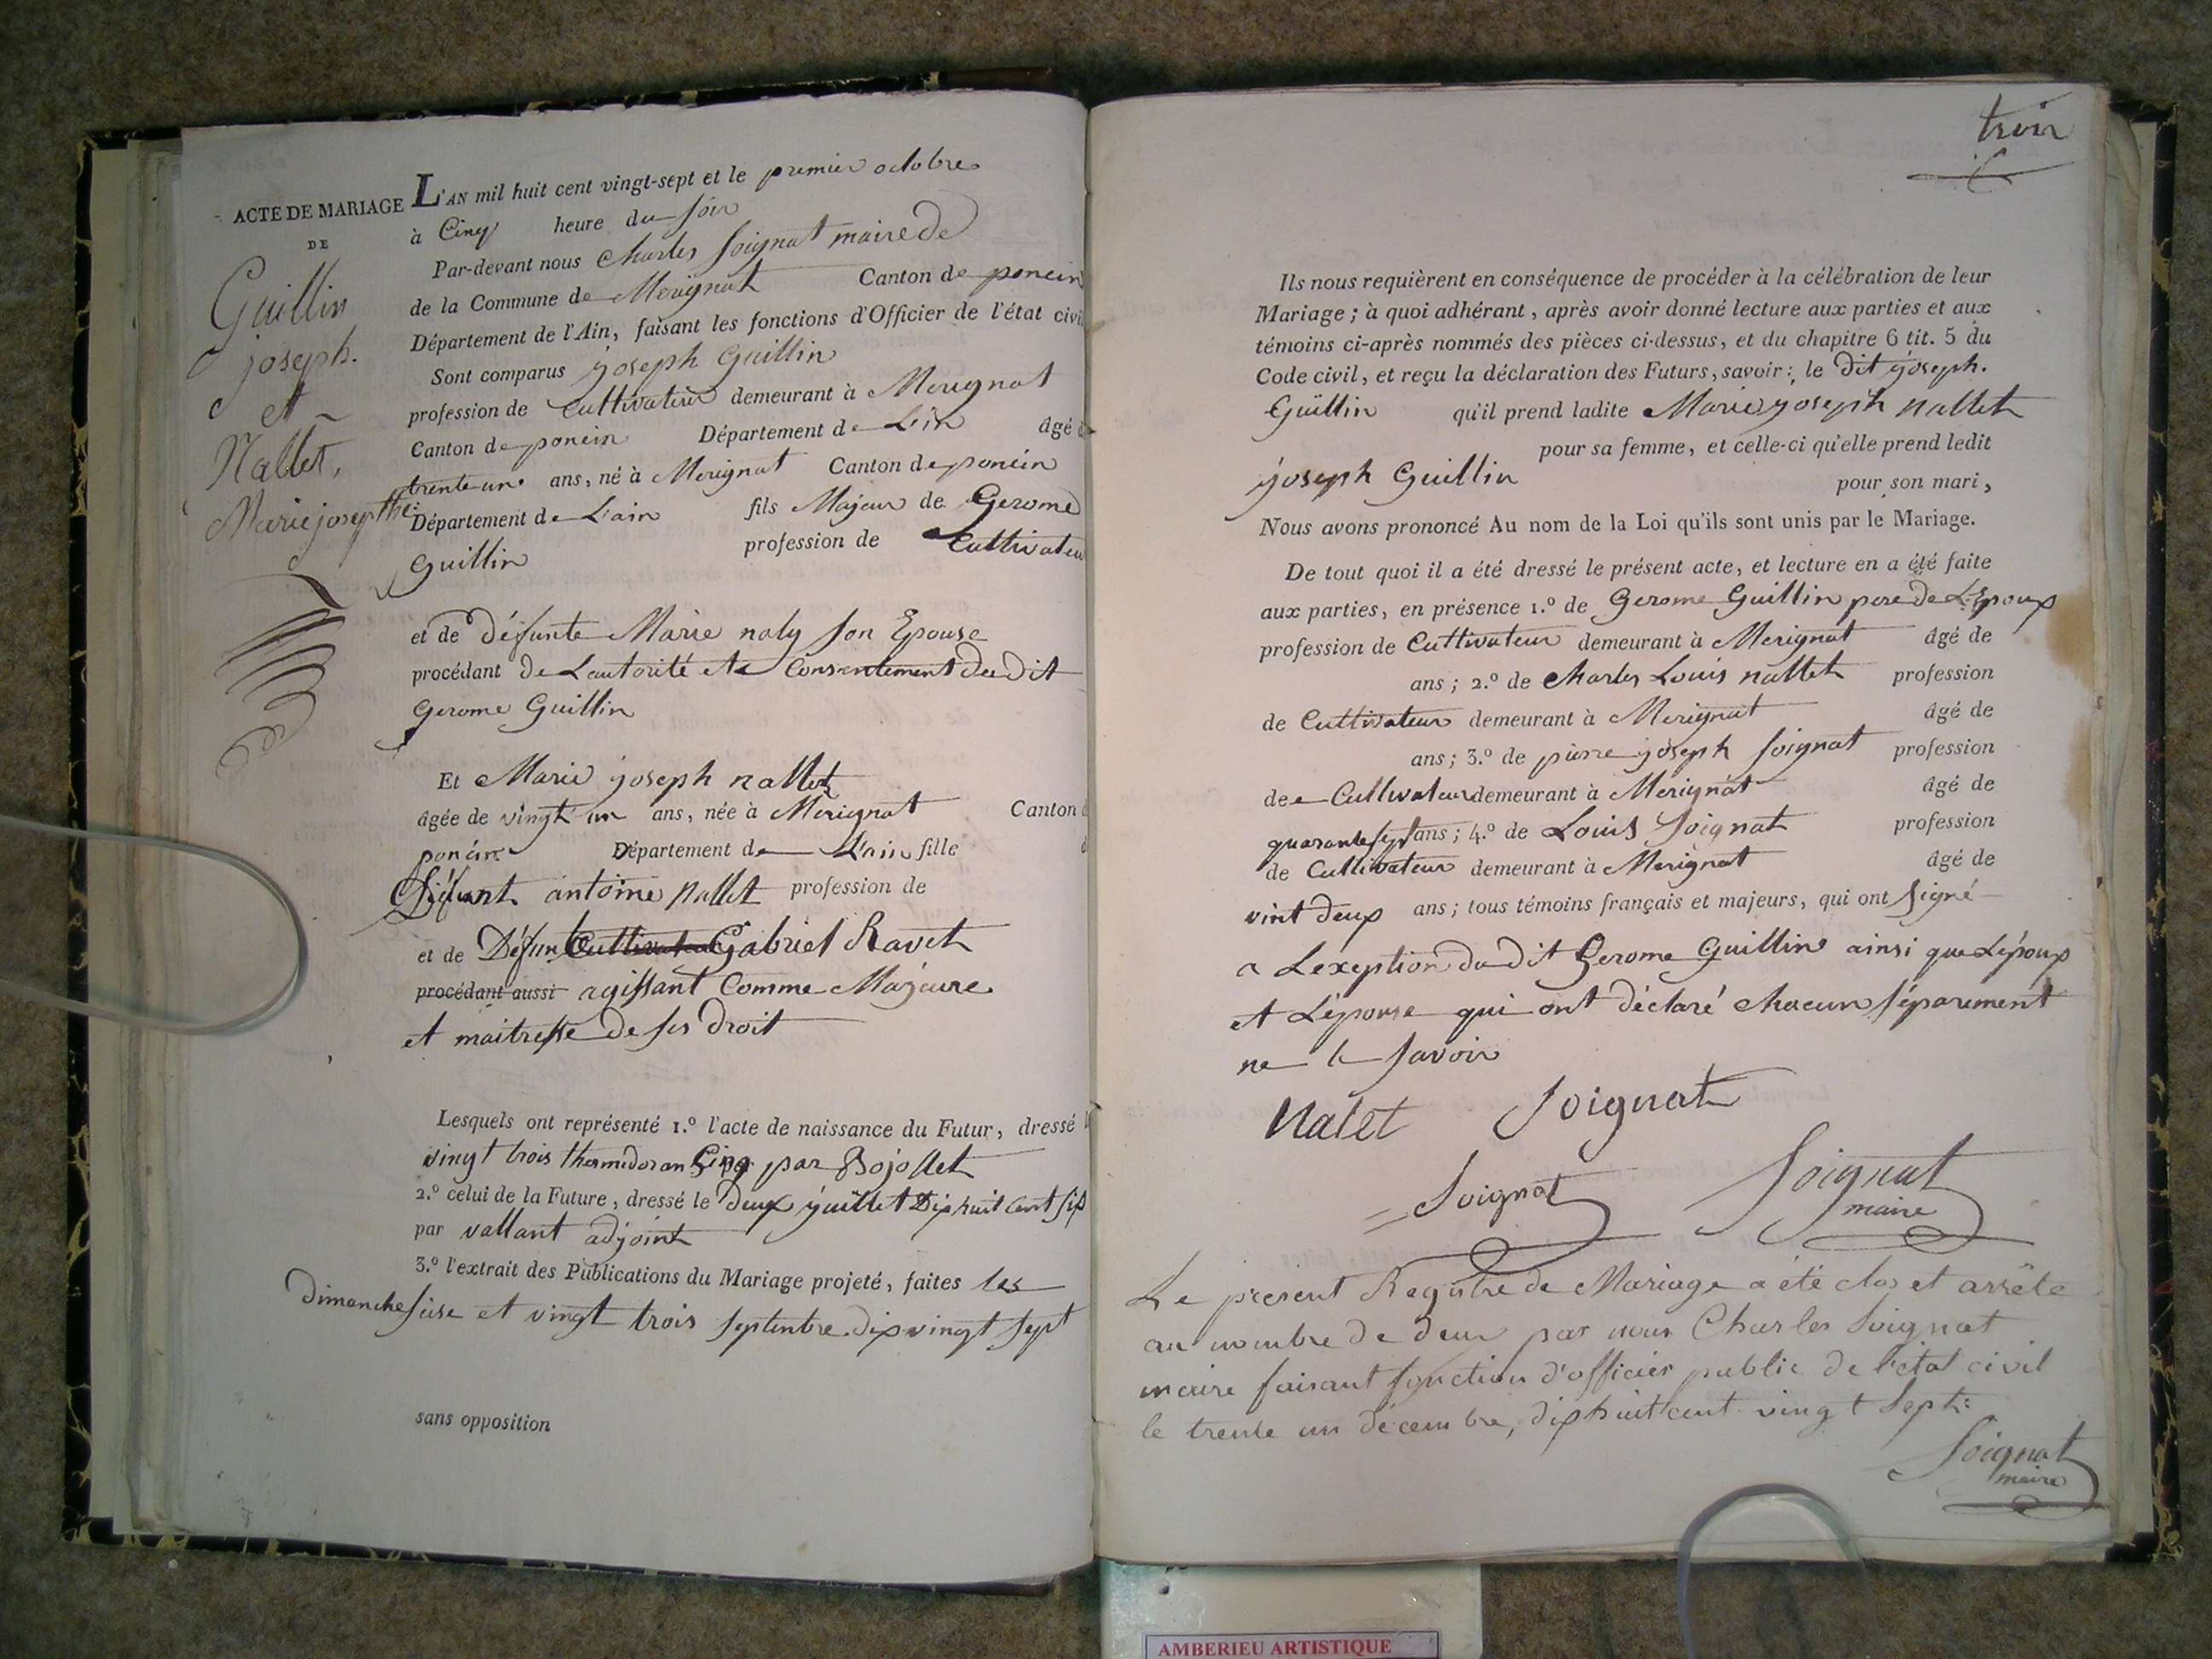 ACTE DE MARIAGE
DE
Guillin
joseph.
et
Nallet,
Marie josepthe
L'AN mil huit cent vingt-sept et le premier octobre
à Cinq heure du soir
Par-devant nous Charles Soignat maire de
de la Commune de Merignat Canton de poncin
Département de l'Ain, faisant les fonctions d'Officier de l'état civi
Sont comparus joseph Guillin
profession de Cultivateur demeurant à Merignat
Canton de poncin Département de L'ain âgé d
trente un ans, né à Merignat Canton de poncin
Département de L'ain fils Majeur de Gerome
Guillin profession de Cultivateu
et de défunte Marie naly son Epouse
procédant de Lautorité et Consentement du dit
Gerome Guillin
Et Marie joseph nallet
âgée de vingt un ans, née à Merignat Canton d
poncin Département de L'ain fille d
Défunt antoine Nallet profession de
et de Défunt Cultivateur Gabriel Ravet
procédant aussi agissant Comme Majeure
et maitresse de ses droit
Lesquels ont représenté 1.° l'acte de naissance du Futur, dressé l
vingt trois thermidor an Cinq par Bojollet
2.° celui de la Future, dressé le deux juillet Dix huit Cent six
par vallant adjoint
3.° l'extrait des Publications du Mariage projeté, faites les
dimanche seise et vingt trois septembre dix vingt sept
sans opposition
trois
Ils nous requièrent en conséquence de procéder à la célébration de leur
Mariage ; à quoi adhérant, après avoir donné lecture aux parties et aux
témoins ci-après nommés des pièces ci-dessus, et du chapitre 6 tit. 5 du
Code civil, et reçu la déclaration des Futurs, savoir : le dit joseph.
Guillin qu'il prend ladite Marie joseph nallet
pour sa femme, et celle-ci qu'elle prend ledit
joseph Guillin pour son mari,
Nous avons prononcé Au nom de la Loi qu'ils sont unis par le Mariage.
De tout quoi il a été dressé le présent acte, et lecture en a été faite
aux parties, en présence 1.° de Gerome Guillin pere de L'Epoux
profession de Cultivateur demeurant à Merignat âgé de
ans ; 2.° de Charles Louis nallet profession
de Cultivateur demeurant à Merignat âgé de
ans ; 3.° de pierre joseph Soignat profession
de Cultivateur demeurant à Merignat âgé de
quarante sept ans ; 4.° de Louis Soignat profession
de Cultivateur demeurant à Merignat âgé de
vint deux ans ; tous témoins français et majeurs, qui ont signé
a Lexeption du dit Gerome Guillin ainsi que Lépoux
et Lépouse qui ont déclaré chacun séparement
ne le savoir
Nalet Soignat
Soignat Soignat
maire
Le present Registre de Mariage a été clos et arrêté
au nombre de deux par nous Charles Soignat
maire faisant fonction d'officier public de l'état civil
le trente un décembre, dix huit cent vingt sept.
Soignat
maire
AMBERIEU ARTISTIQUE